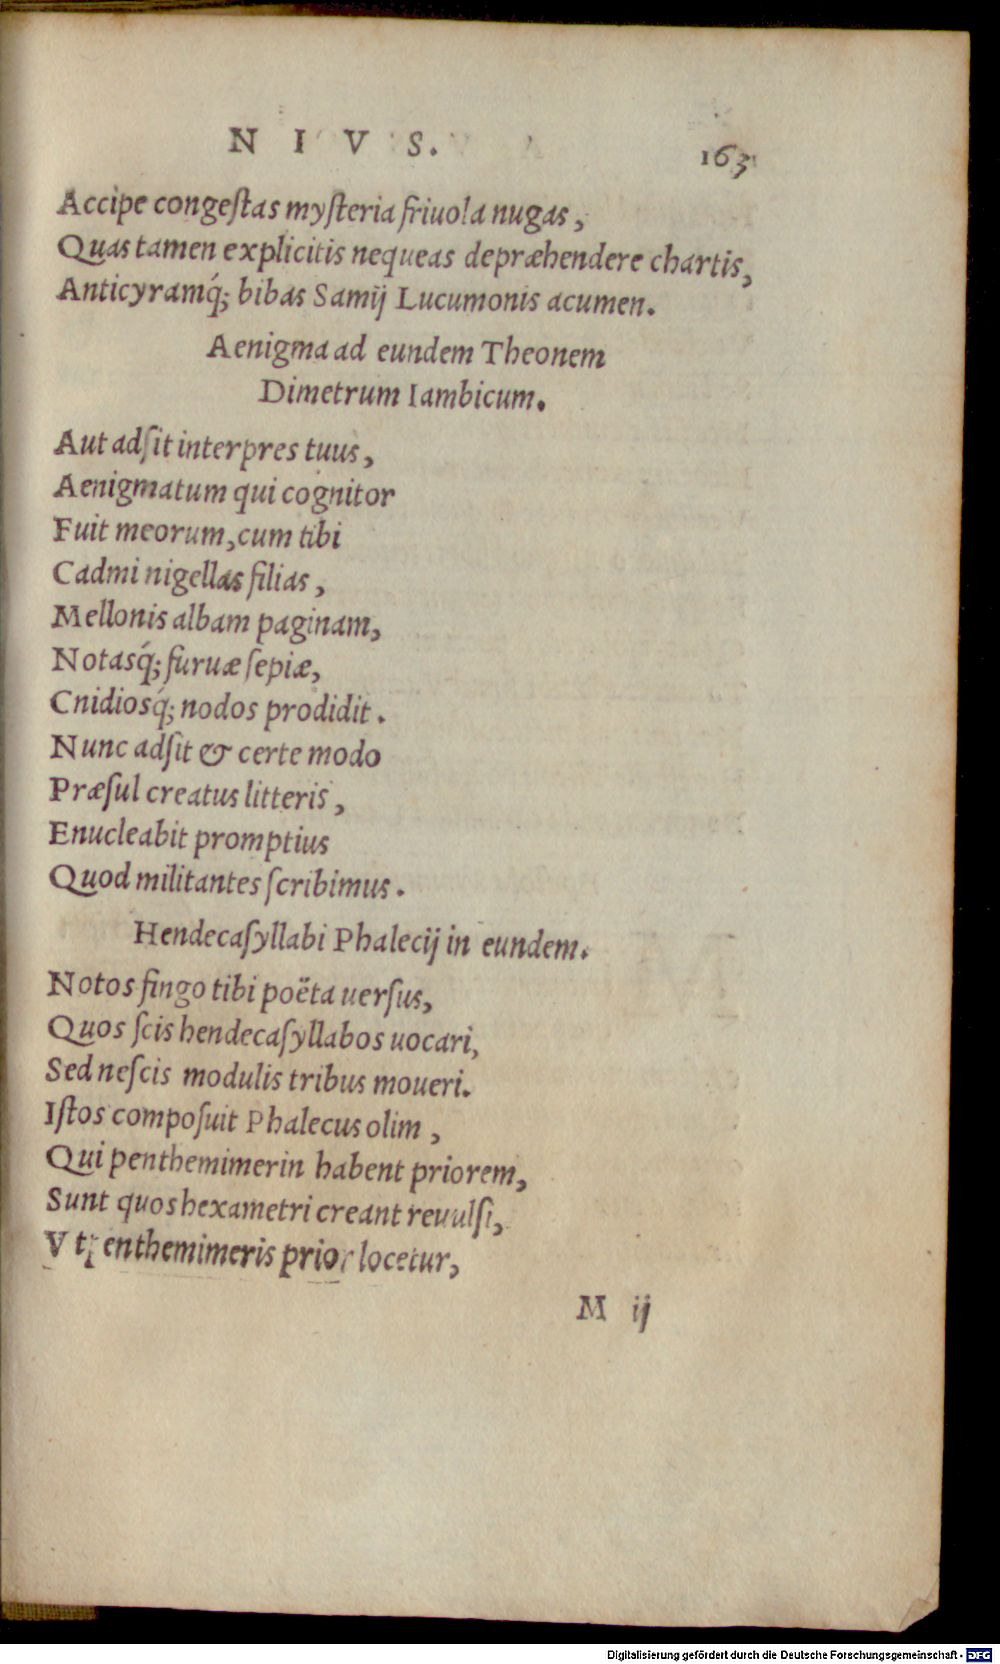 N I V S.
163
Accipe congeſtas myſteria friuola nugas,
Quas tamen explicitis nequeas depræhendere chartis,
Anticyramq́; bibas Samij Lucumonis acumen.
Aenigma ad eundem Theonem
Dimetrum Iambicum.
Aut adſit interpres tuus,
Aenigmatum qui cognitor
Fuit meorum, cum tibi
Cadmi nigellas filias,
Mellonis albam paginam,
Notasq́; furuæ ſepiæ,
Cnidiosq́; nodos prodidit.
Nunc adſit & certe modo
Præſul creatus litteris,
Enucleabit promptius
Quod militantes ſcribimus.
Hendecaſyllabi Phalecij in eundem.
Notos fingo tibi poëta uerſus,
Quos ſcis hendecaſyllabos uocari,
Sed neſcis modulis tribus moueri.
Iſtos compoſuit Phalecus olim,
Qui penthemimerin habent priorem,
Sunt quos hexametri creant reuulſi,
V t penthemimeris prior locetur,
M ij
Digitalisierung gefördert durch die Deutsche Forschungsgemeinschaft - DFG